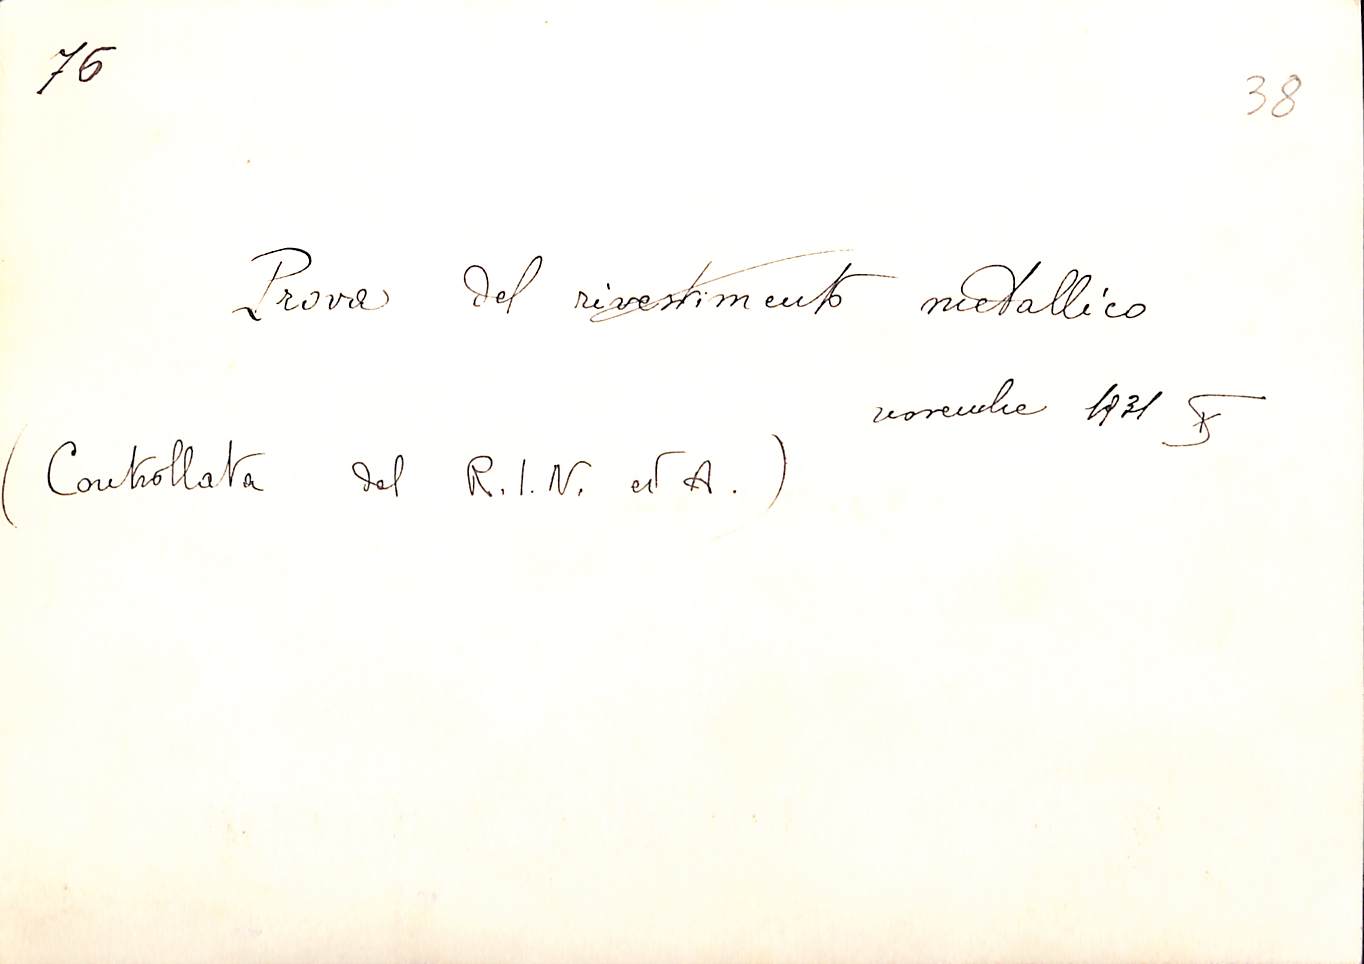 76
38
Prova del rivestimento metallico
novembre 1931 X
(Controllata dal R.I.N. ed A.)